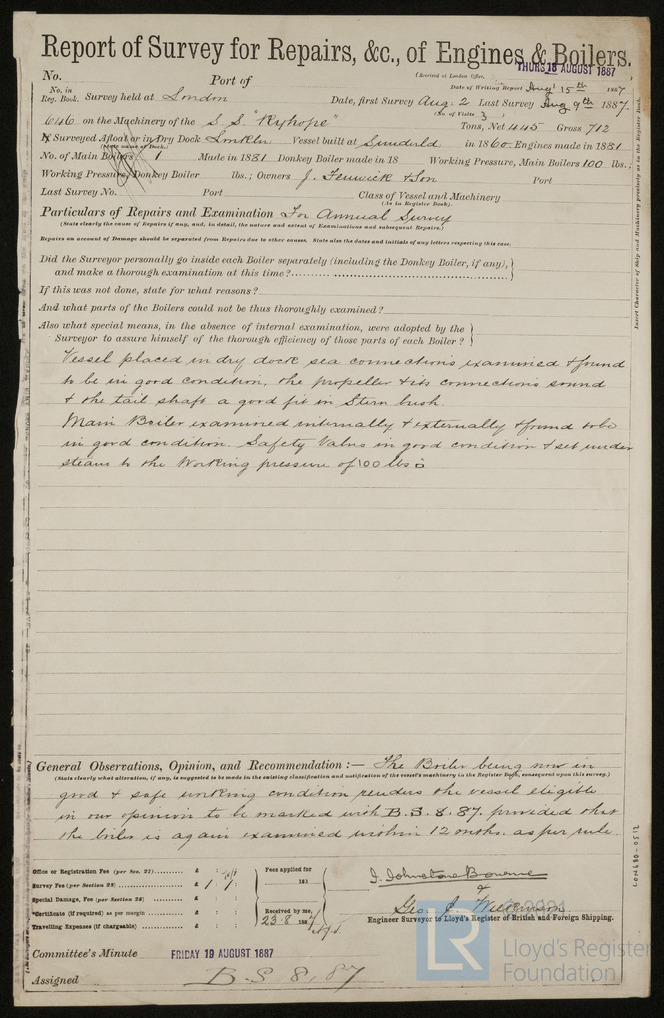 Report of Survey for Repairs, &c., of Engines & Boilers.
(Received at London Office, THURS 18 AUGUST 1887
No. Port of Date of Writing Report Augt 15th 1887
No. in Reg. Book. Survey held at London Date, first Survey Aug. 2 Last Survey Aug 9th 1887.
(No. of Visits 3 )
646 on the Machinery of the S S "Ryhope" Tons, Net 445 Gross 712
Surveyed Afloat or in Dry Dock Vessel built at Sunderld in 1860. Engines made in 1881
(State name of Dock.)
No. of Main Boilers 1 Made in 1881 Donkey Boiler made in 18 Working Pressure, Main Boilers 100 lbs.;
Working Pressure, Donkey Boiler lbs.; Owners J. Fenwick & Son Port
Last Survey No. Port Class of Vessel and Machinery
(As in Register Book).
Particulars of Repairs and Examination For Annual Survey
(State clearly the cause of Repairs if any, and, in detail, the nature and extent of Examinations and subsequent Repairs.)
Repairs on account of Damage should be separated from Repairs due to other causes. State also the dates and initials of any letters respecting this case.
Did the Surveyor personally go inside each Boiler separately (including the Donkey Boiler, if any),
and make a thorough examination at this time?
If this was not done, state for what reasons?
And what parts of the Boilers could not be thus thoroughly examined?
Also what special means, in the absence of internal examination, were adopted by the
Surveyor to assure himself of the thorough efficiency of those parts of each Boiler?
Vessel placed in dry dock sea connections examined & found
to be in good condition, the propeller & its connections sound
& the tail shaft a good fit in Stern bush.
Main Boiler examined internally & externally & found to be
in good condition. Safety Valves in good condition & set under
steam to the Working pressure of 100 lbs
Insert Character of Ship and Machinery precisely as in the Register Book.
General Observations, Opinion, and Recommendation :— The Boiler being now in
(State clearly what alteration, if any, is suggested to be made in the existing classification and notification of the vessel's machinery in the Register Book, consequent upon this survey.)
good & safe working condition renders the vessel eligible
in our opinion to be marked with B.S. 8. 87. provided that
the boiler is again examined within 12 mths. as per rule.
Office or Registration Fee (per Sec. 27) £ : Fees applied for
Survey Fee (per Section 28) £ 1 : 1 : 188
Special Damage, Fee (per Section 28) £ :
Certificate (if required) as per margin £ : Received by me,
Travelling Expenses (if chargeable) £ : 23.8 1887
J. Johnstone Bourne
&
Geo. J. Wilkinson
Engineer Surveyor to Lloyd's Register of British and Foreign Shipping.
Committee's Minute FRIDAY 19 AUGUST 1887
Assigned B.S. 8, 87
LON680-0512
LR
Lloyd's Register
Foundation